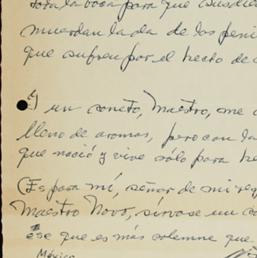 toda la boca para que
muerdan la da de los
que sufren por el hecho de
Y un soneto, Maestro, me
lleno de aromas, pero con la
que nació y vive sólo para
(Es para mí, señor de mi
Maestro Novo, sírvase un
Ese que es más solemne que
México